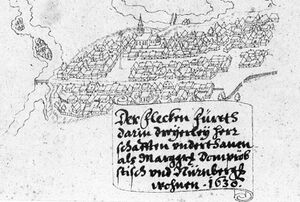 Der Flecken Fürth
darin dreyerley herr
schafften underthanen
als Marggref Dompröb
stisch und Nürnbergh
wohnen · 1630.